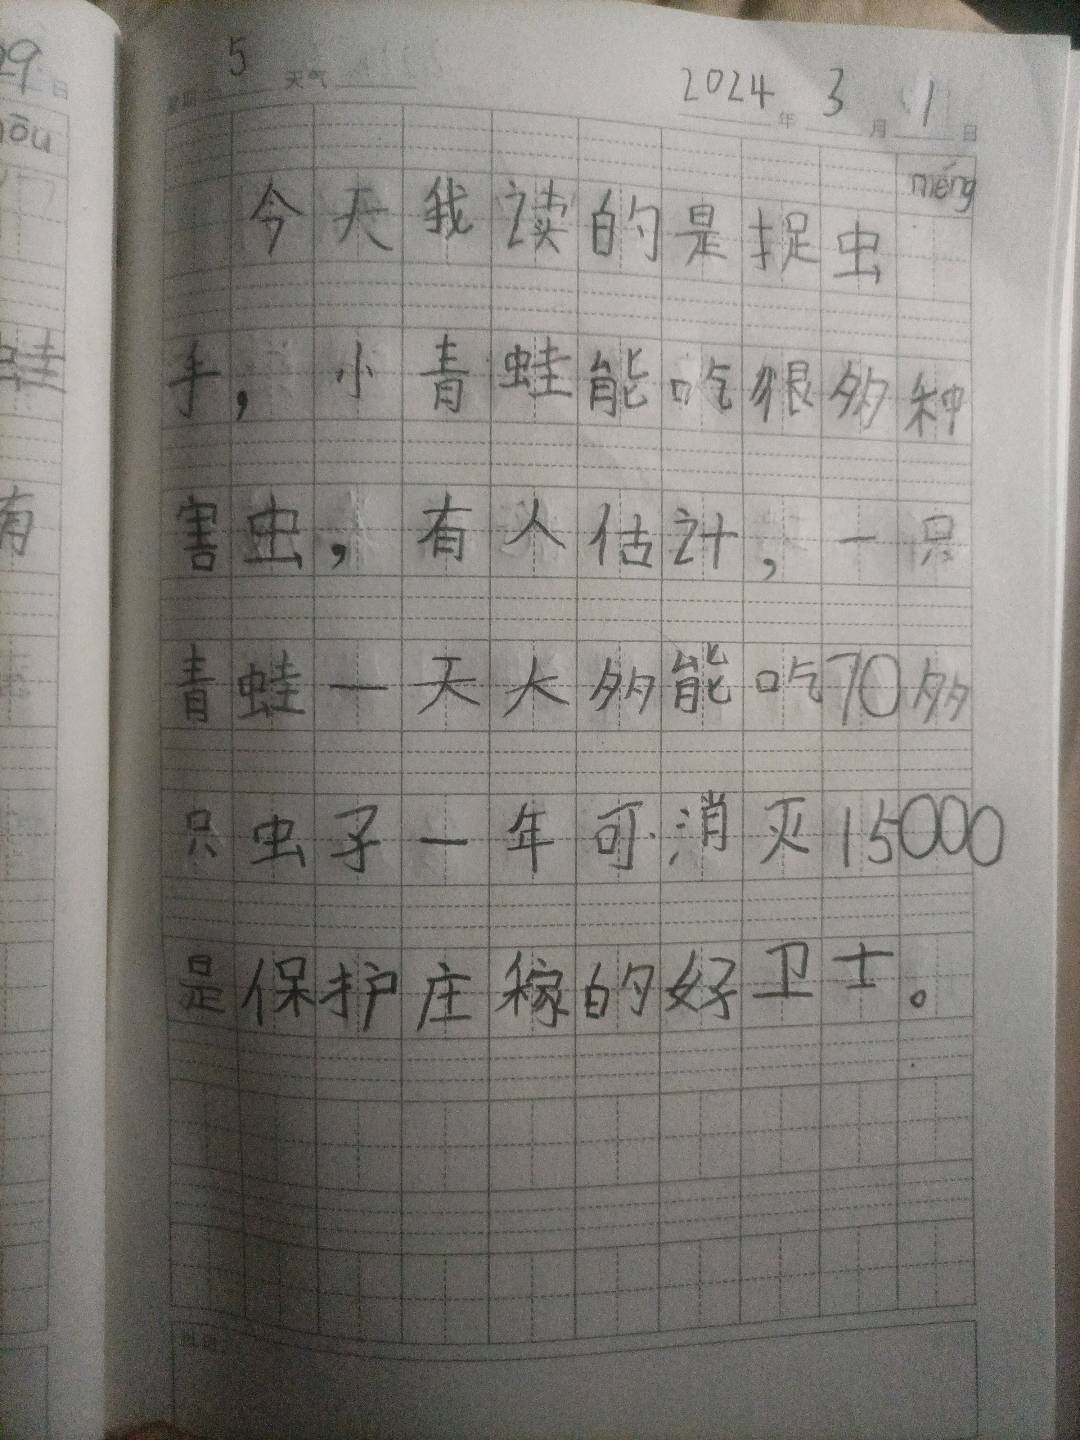 29日
hōu
蛙
有
星期 5 天气
2024年3月1日
měng
今天我读的是捉虫
手，小青蛙能吃很多种
害虫，有人估计，一只
青蛙一天大多能吃70多
只虫子一年可消灭15000
是保护庄稼的好卫士。